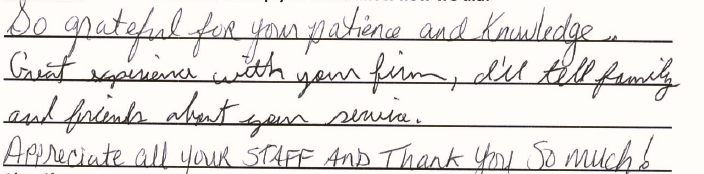 So grateful for your patience and Knowledge..
Great experience with your firm, I'll tell family
and friends about your service.
Appreciate all your STAFF AND Thank you So much!